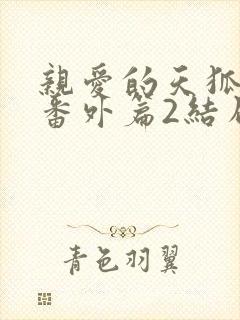 親愛的天狐
番外篇2結
青色羽翼